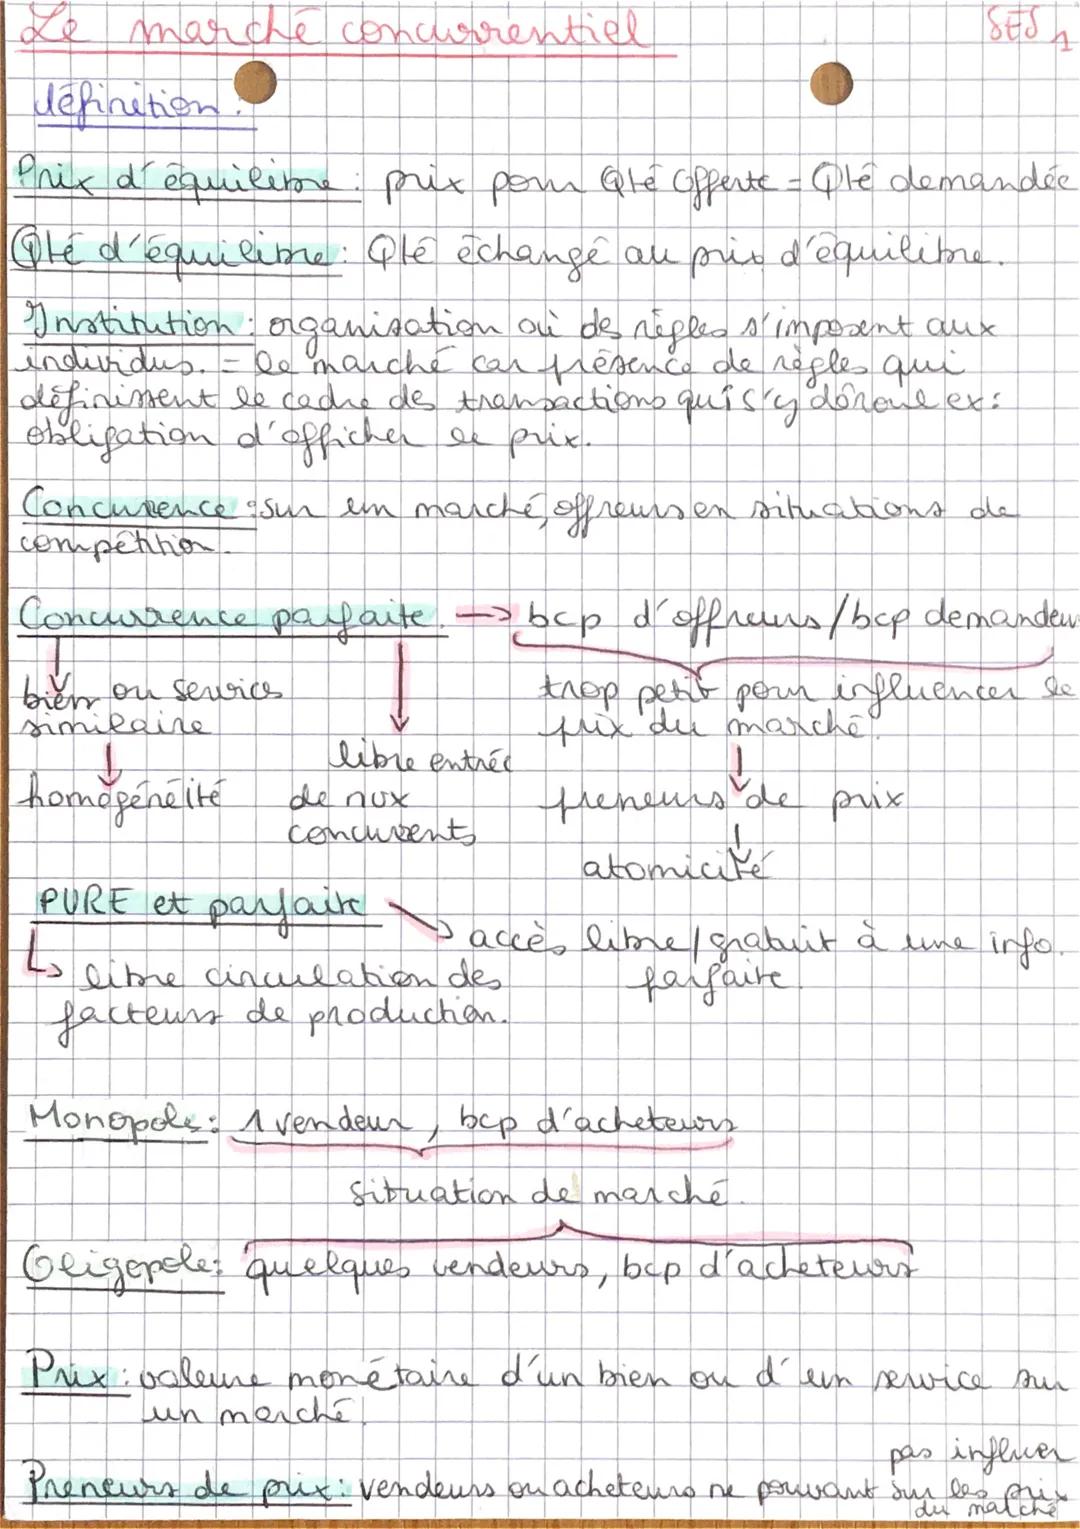 Le marché concurrentiel
SES 1
définition :
Prix d'équilibre : prix pour Qté offerte = Qté demandée
Qté d'équilibre : Qté échangé au prix d'équilibre.
Institution : organisation où des règles s'imposent aux
individus. = le marché car présence de règles qui
définissent le cadre des transactions qui s'y déroule ex :
obligation d'afficher le prix.
Concurence : sur un marché, offreurs en situations de
compétition.
Concurrence parfaite. → bcp d'offreurs / bcp demandeur
bien ou services
similaire
homogénéité
libre entrée
de nvx
concurrents
trop petit pour influencer le
prix du marché.
preneurs de prix
atomicité
PURE et parfaite
accès libre / gratuit à une info.
parfaite.
libre circulation des
facteurs de production.
Monopole : 1 vendeur, bcp d'acheteurs
situation de marché.
Oligopole : quelques vendeurs, bcp d'acheteurs
Prix : valeure monétaire d'un bien ou d'un service sur
un marché.
Preneurs de prix : vendeurs ou acheteurs ne pouvant pas influer
sur les prix
du marché